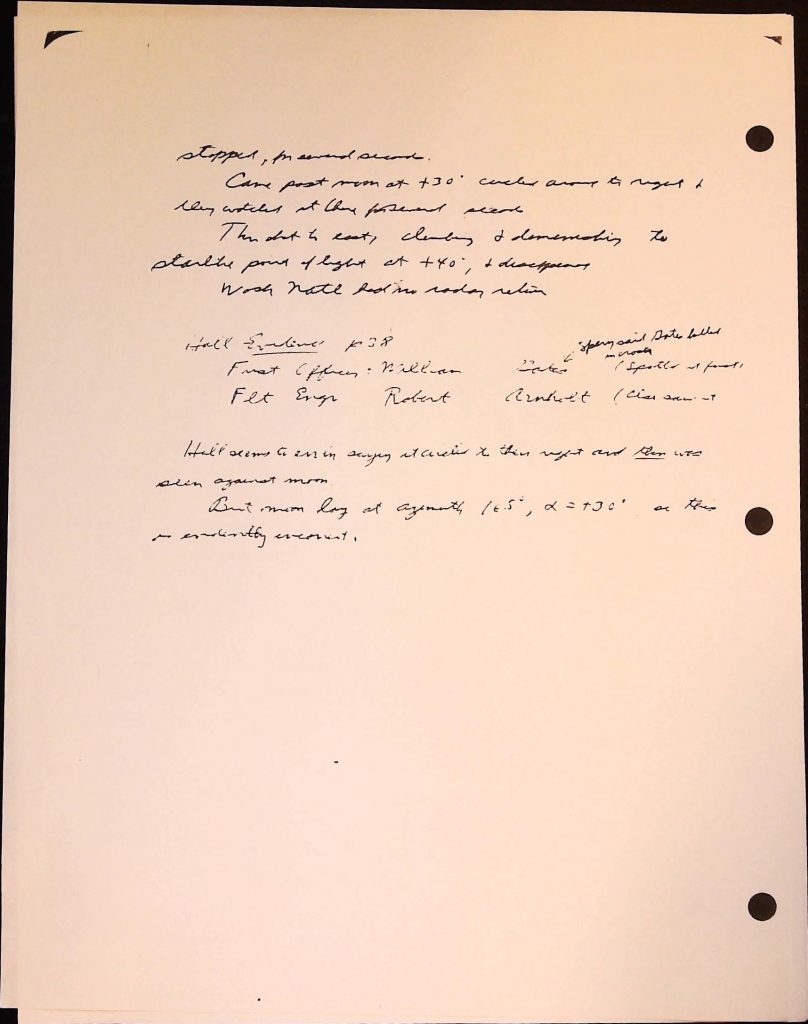 stopped, for several seconds.
Came past moon at +30° circles around to right &
they watched it there for several seconds
Then dart to east, climbing & diminishing to
starlike point of light at +40°, & disappears
Wash Natl had no radar return
Hall Evidence p 38
Sperry said Gates killed
in crash
First Officer: William Gates (Spotted it first)
Flt Engr Robert Arnholt (Also saw it
Hall seems to err in saying it circled to their right and then was
seen against moon
But moon lay at azimuth 165°, α = +30° so this
is evidently incorrect.